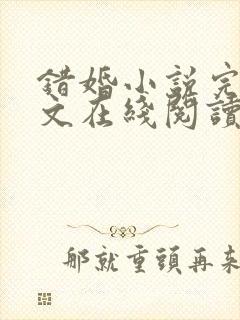 錯婚小説完
文在綫閱讀
那就重頭再来